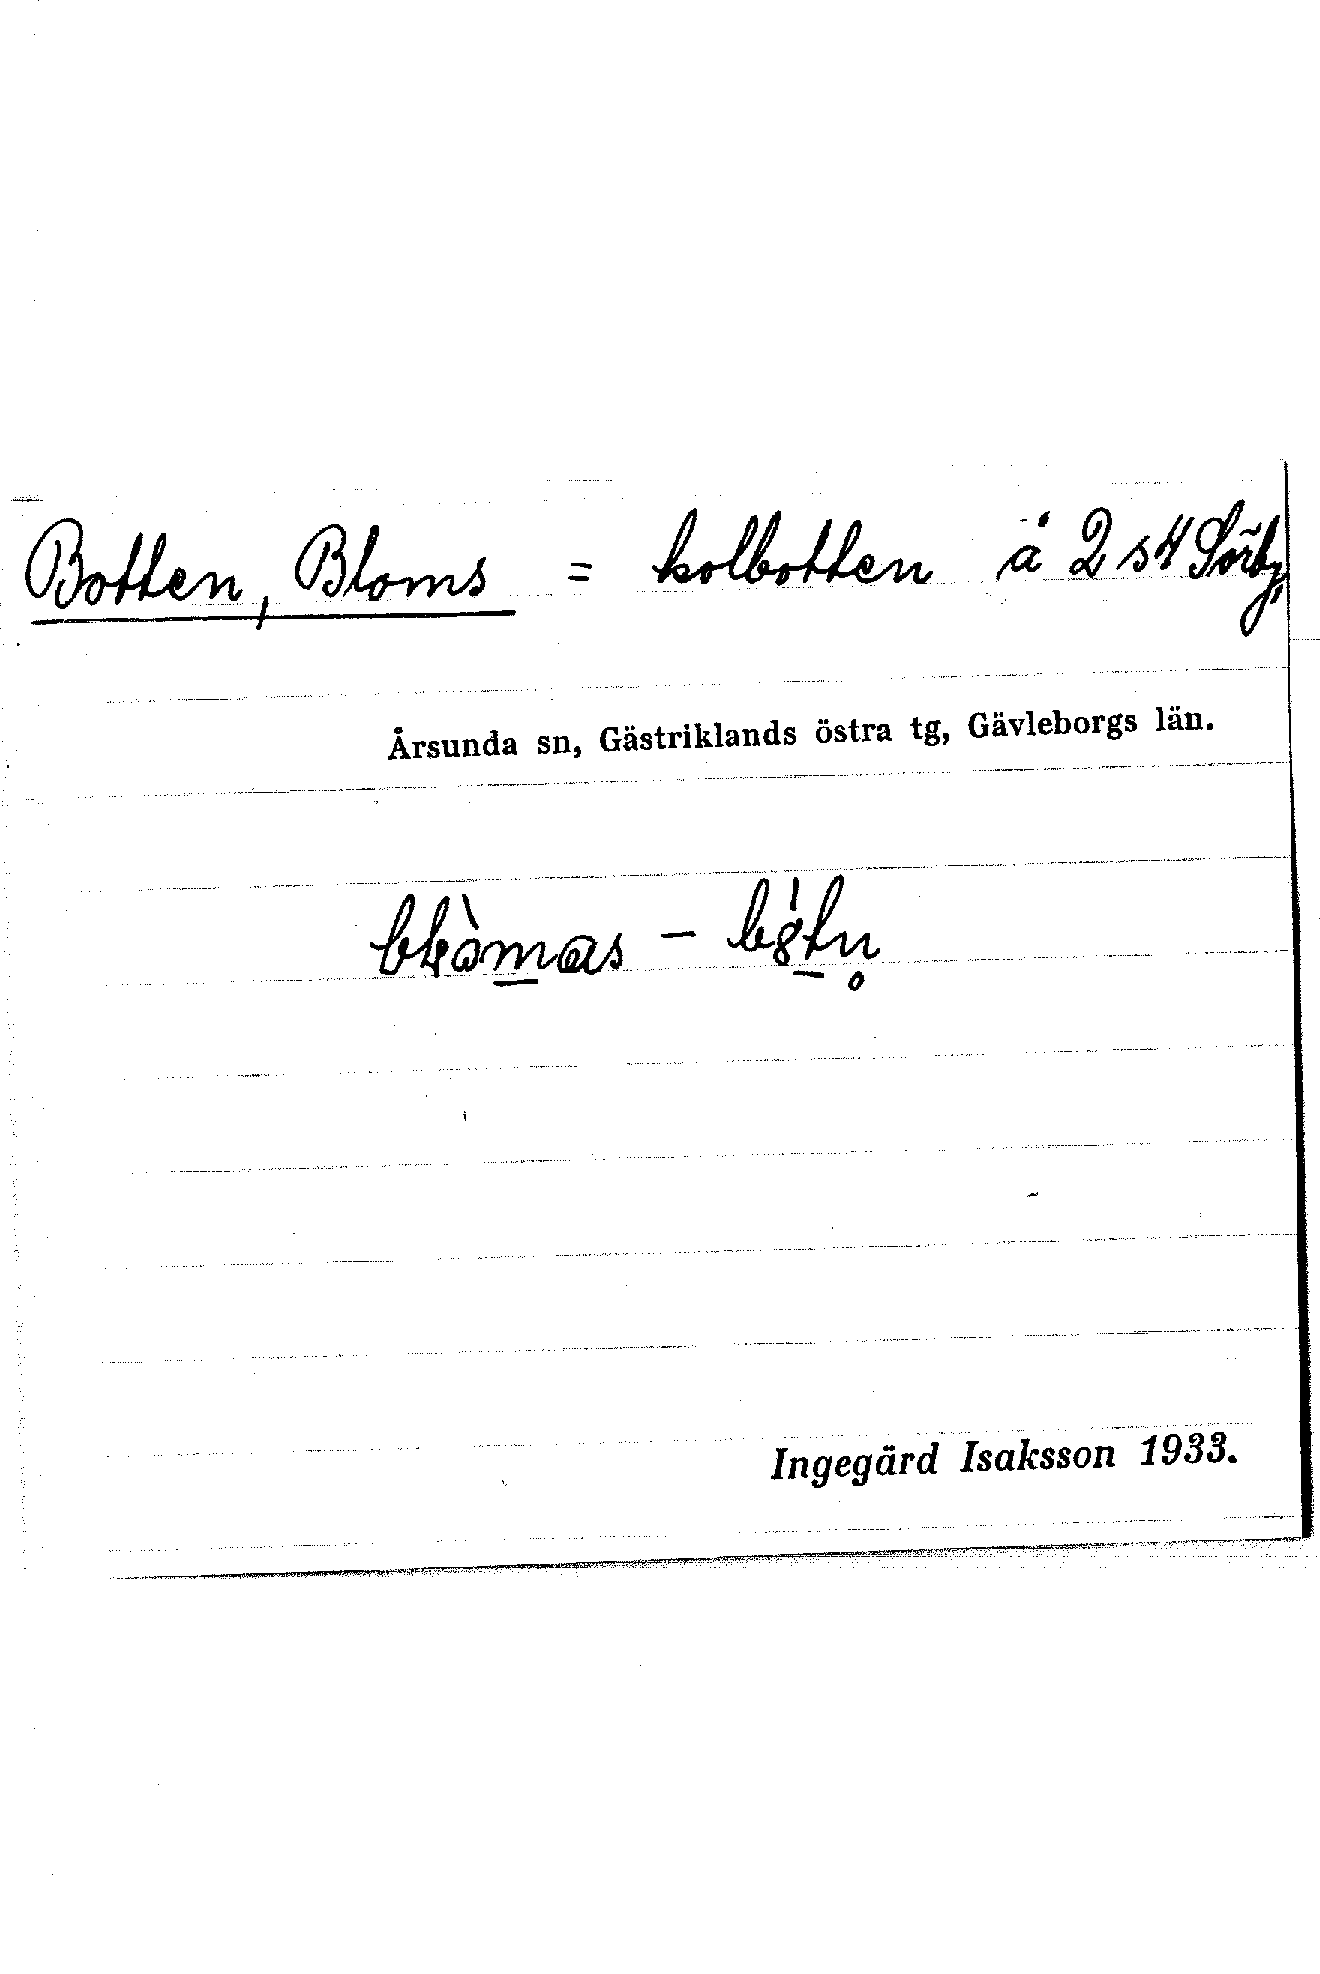 Botten, Bloms = kolbotten å 2 s4 Sörby,
Årsunda sn, Gästriklands östra tg, Gävleborgs län.
Ingegärd Isaksson 1933.